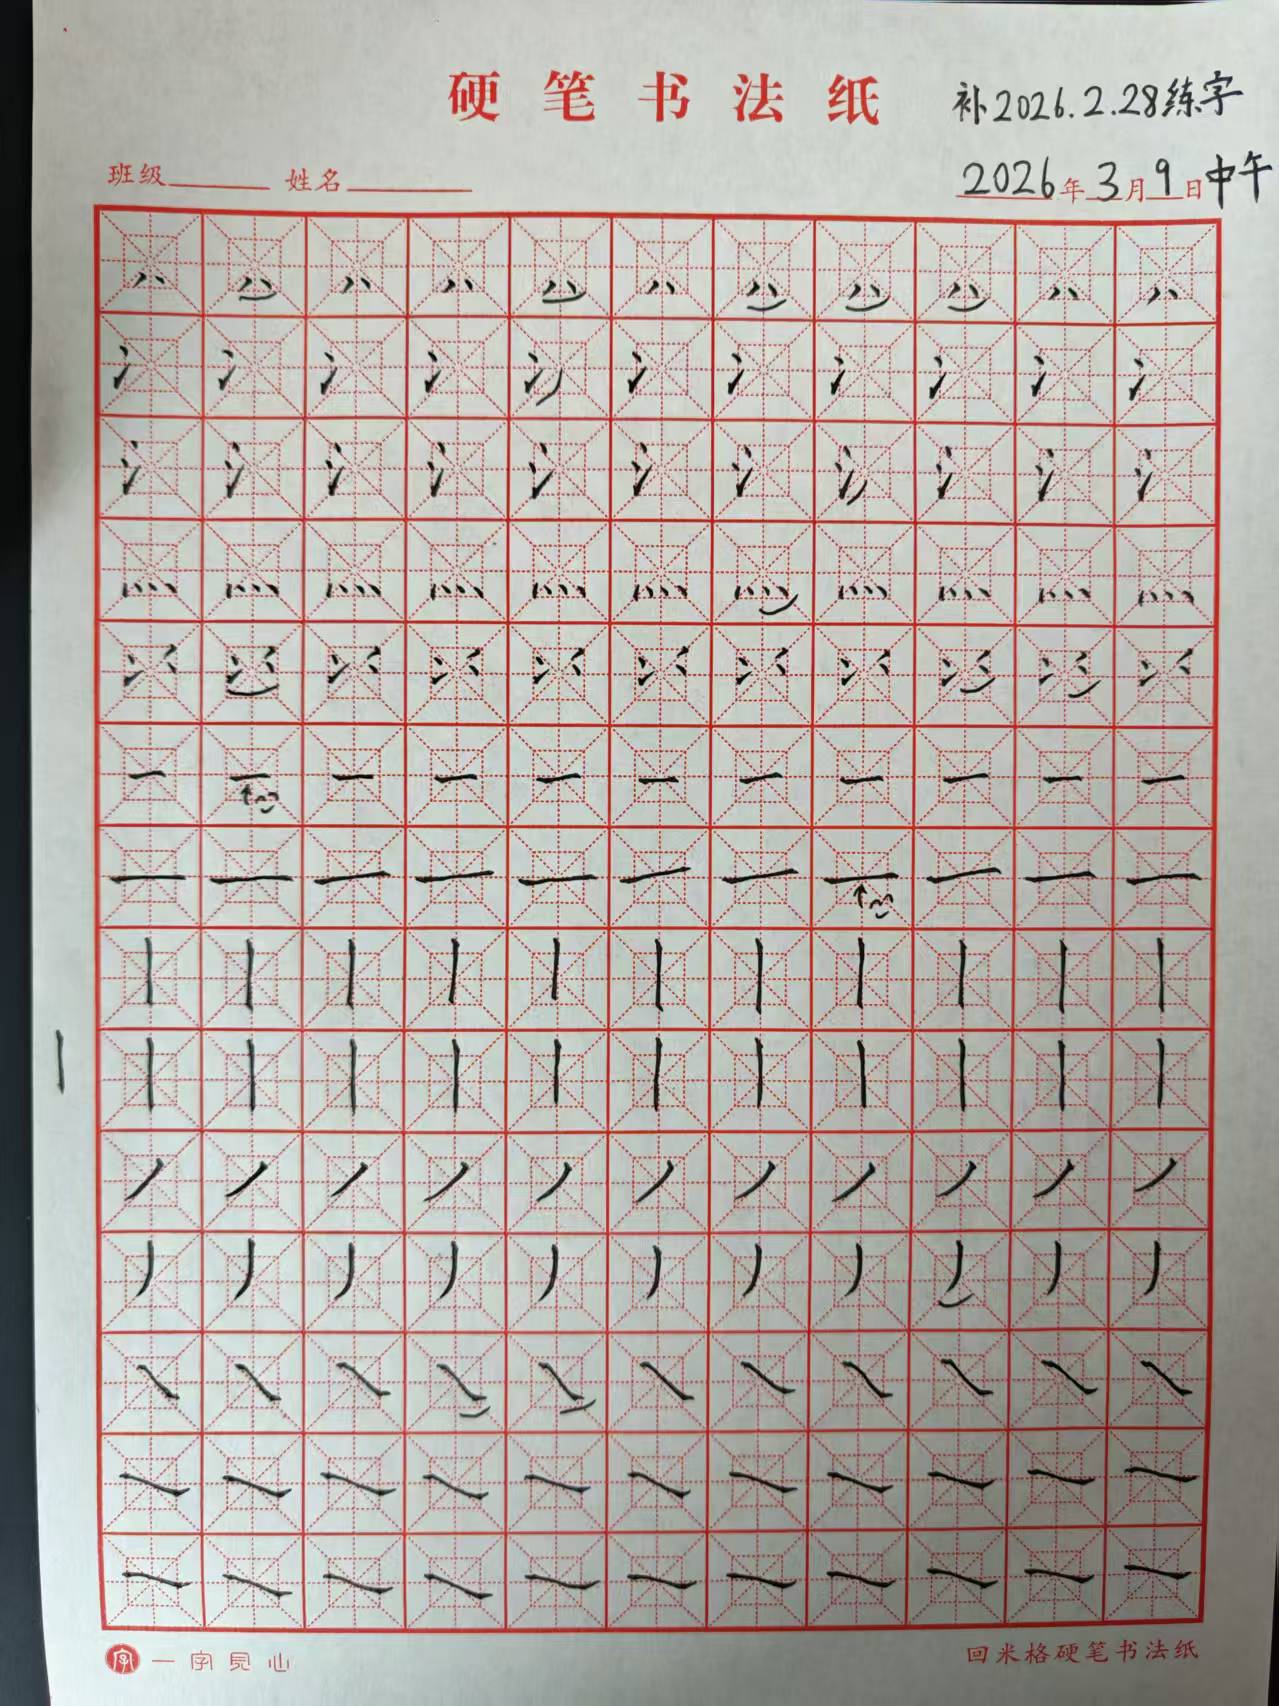 硬笔书法纸
补2026.2.28练字
班级 姓名 2026年3月9日中午
一字见心 回米格硬笔书法纸